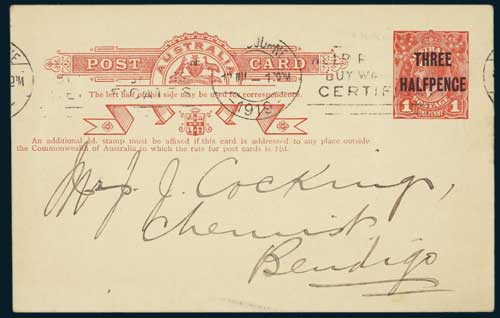 AUSTRALIA
POST CARD
THREE
HALFPENCE
POSTAGE
1 ONE PENNY 1
1919
BUY WA
CERTIF
The left half of this side may be used for correspondence.
An additional ½d. stamp must be affixed if this card is addressed to any place outside
the Commonwealth of Australia to which the rate for post cards is 1½d.
J. Cocking,
Chemist
Bendigo